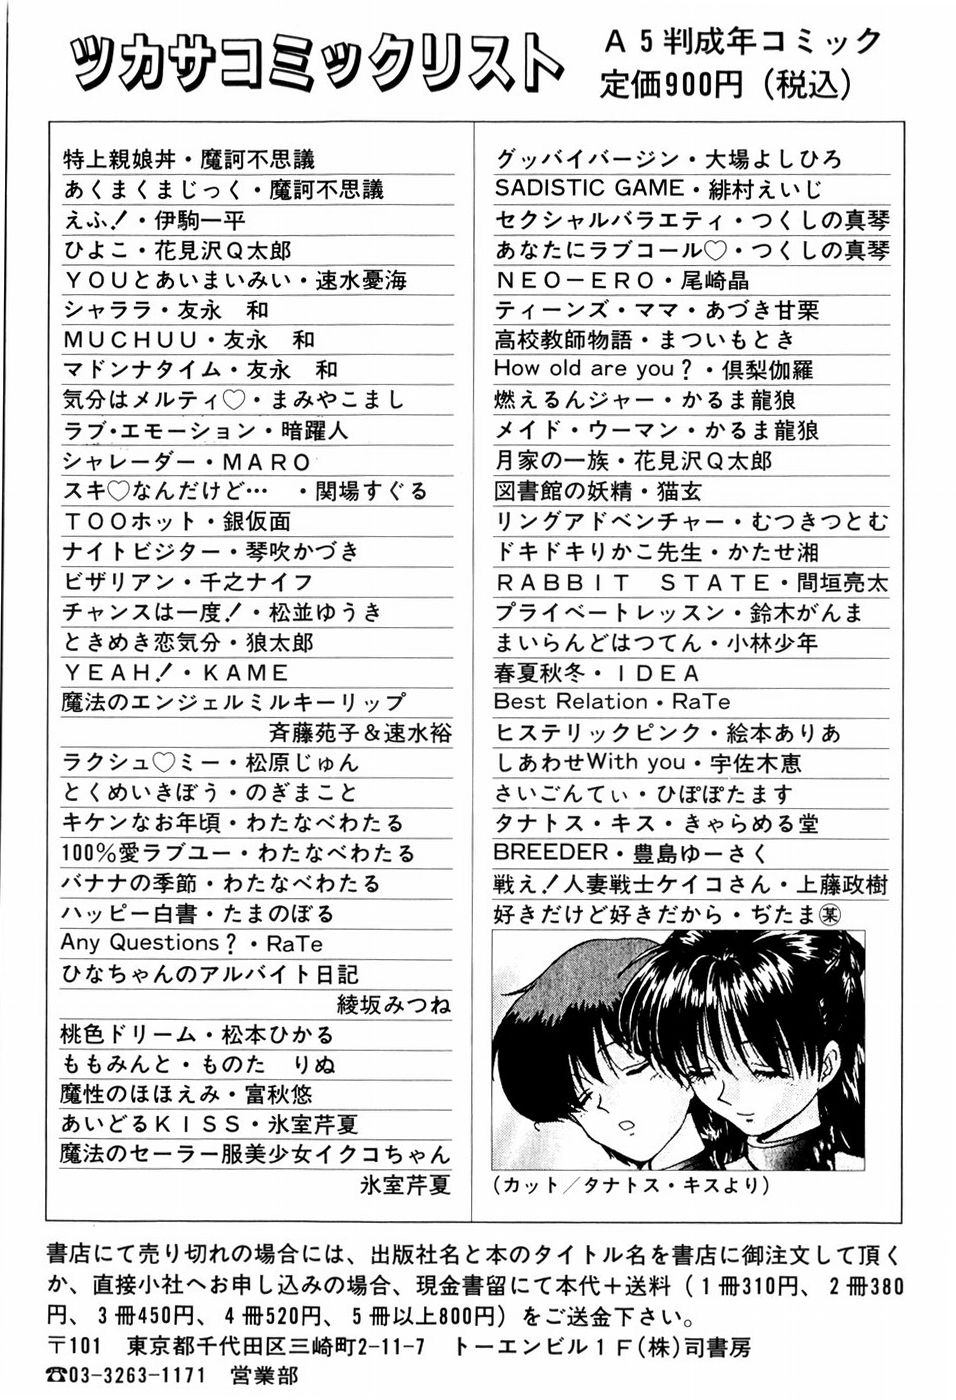 ツカサコミックリスト
A5判成年コミック
定価900円（税込）
特上親娘丼・魔訶不思議
あくまくまじっく・魔訶不思議
えふ！・伊駒一平
ひよこ・花見沢Q太郎
YOUとあいまいみい・速水憂海
シャララ・友永　和
MUCHUU・友永　和
マドンナタイム・友永　和
気分はメルティ♡・まみやこまし
ラブ・エモーション・暗躍人
シャレーダー・MARO
スキ♡なんだけど…　・関場すぐる
TOOホット・銀仮面
ナイトビジター・琴吹かづき
ビザリアン・千之ナイフ
チャンスは一度！・松並ゆうき
ときめき恋気分・狼太郎
YEAH！・KAME
魔法のエンジェルミルキーリップ
斉藤苑子＆速水裕
ラクシュ♡ミー・松原じゅん
とくめいきぼう・のぎまこと
キケンなお年頃・わたなべわたる
100％愛ラブユー・わたなべわたる
バナナの季節・わたなべわたる
ハッピー白書・たまのぼる
Any Questions？・RaTe
ひなちゃんのアルバイト日記
綾坂みつね
桃色ドリーム・松本ひかる
ももみんと・ものた　りぬ
魔性のほほえみ・富秋悠
あいどるKISS・氷室芹夏
魔法のセーラー服美少女イクコちゃん
氷室芹夏
グッバイバージン・大場よしひろ
SADISTIC GAME・緋村えいじ
セクシャルバラエティ・つくしの真琴
あなたにラブコール♡・つくしの真琴
NEO－ERO・尾崎晶
ティーンズ・ママ・あづき甘栗
高校教師物語・まついもとき
How old are you？・倶梨伽羅
燃えるんジャー・かるま龍狼
メイド・ウーマン・かるま龍狼
月家の一族・花見沢Q太郎
図書館の妖精・猫玄
リングアドベンチャー・むつきつとむ
ドキドキりかこ先生・かたせ湘
RABBIT　STATE・間垣亮太
プライベートレッスン・鈴木がんま
まいらんどはつてん・小林少年
春夏秋冬・IDEA
Best Relation・RaTe
ヒステリックピンク・絵本ありあ
しあわせWith you・宇佐木恵
さいごんてぃ・ひぽぽたます
タナトス・キス・きゃらめる堂
BREEDER・豊島ゆーさく
戦え！人妻戦士ケイコさん・上藤政樹
好きだけど好きだから・ぢたま㋱某
(カット／タナトス・キスより)
書店にて売り切れの場合には、出版社名と本のタイトル名を書店に御注文して頂く
か、直接小社へお申し込みの場合、現金書留にて本代＋送料（1冊310円、2冊380
円、3冊450円、4冊520円、5冊以上800円）をご送金下さい。
〒101　東京都千代田区三崎町2-11-7　トーエンビル1F(株)司書房
☎03-3263-1171　営業部